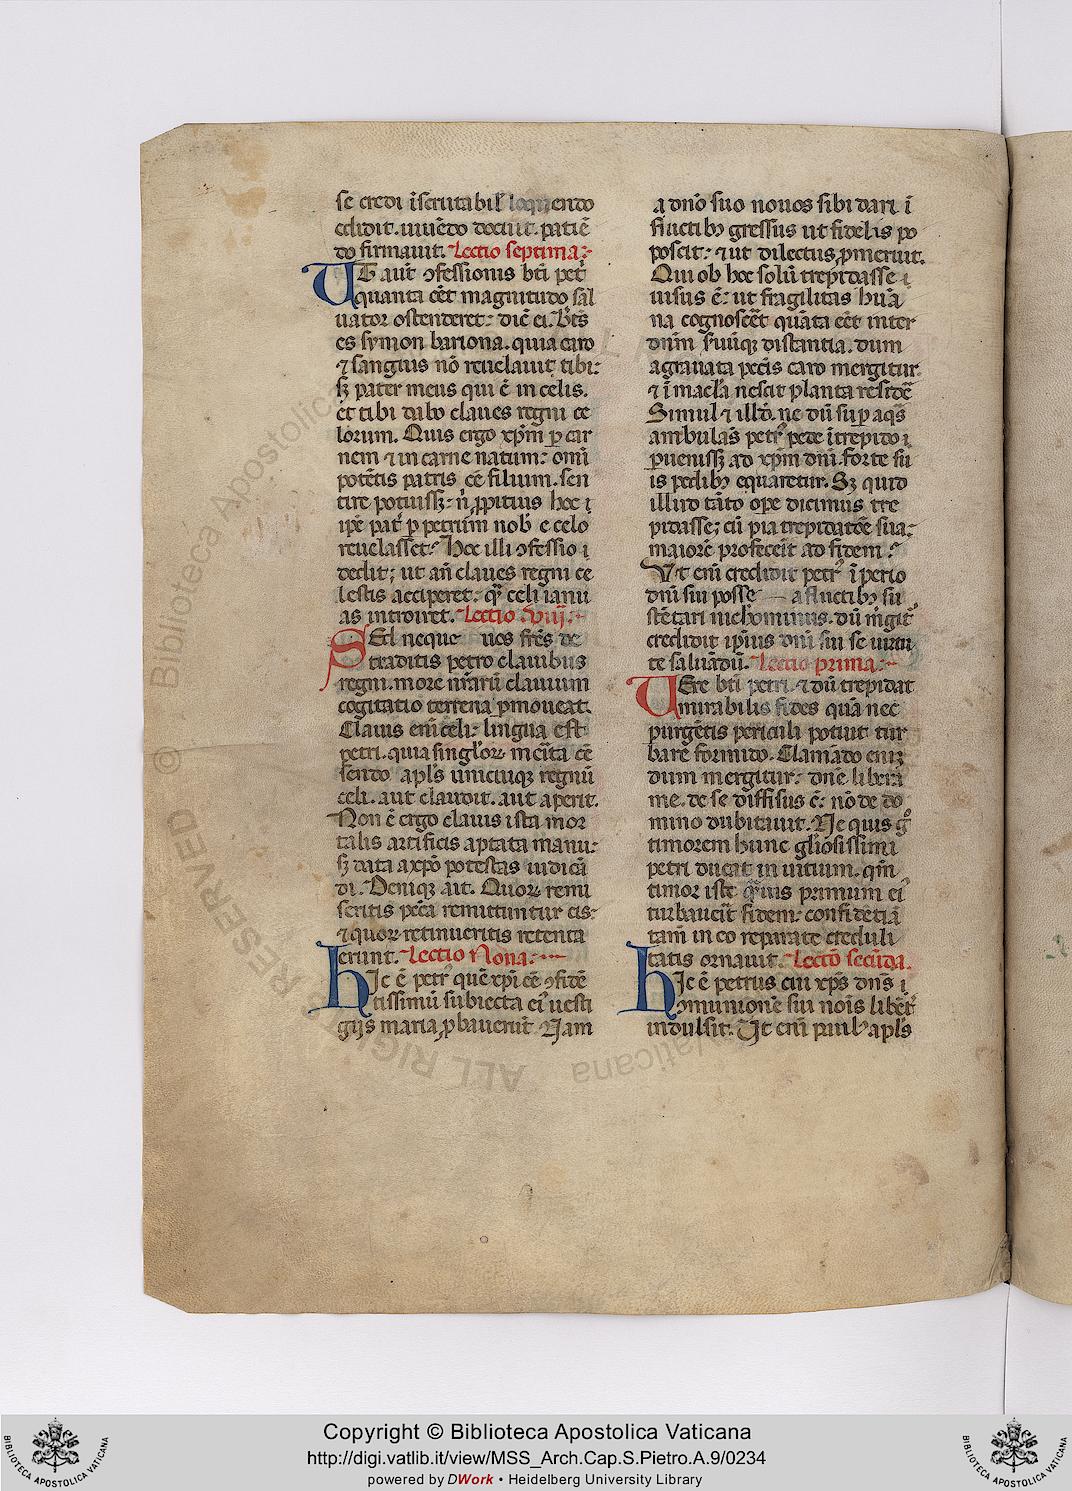 se credi īscrutabil̄ loquendo
edidit. uiuēdo docuit. patiē
do firmauit. Lectio septima:
UT aut̄ ꝯfessionis bt̄i pet̄
quanta eēt magnitudo sal
uator ostenderet: dic̄ ei. Bt̄s
es symon bariona. quia caro
⁊ sanguis nō reuelauit tibi:
sꝫ pater meus qui ē in celis.
et tibi dabo claues regni ce
lorum. Quis ergo xp̄m ꝑ car
nem ⁊ in carne natum: om̄i
potētis patris eē filium. sen
tire potuissꝫ: n̄ ꝓpitius hoc i
ip̄e pat̄ ꝑ petrum nob̄ e celo
reuelasset? Hoc illi ꝯfessio i
dedit; ut añ claues regni ce
lestis acciperet: q̄ celi ianu
as introiret. Lectio viij.
SEd neque uos fr̄es de
traditis petro clauibus
regni. more nr̄arū clauium
cogitatio terrena ꝑmoueat.
Clauis eni᷒ celi: lingua est
petri. quia singl̓oꝝ merita cē
sendo apl̄s unicuiqꝫ regnū
celi. aut claudit. aut aperit.
Non ē ergo clauis ista mor
talis artificis aptata manu:
sꝫ data a xp̄o potestas iudicā
di. Deniqꝫ ait. Quoꝝ remi
seritis pecc̄a remittuntur eis:
⁊ quoꝝ retinueritis retenta
erunt. Lectio Nona:
HIc ē petr᷒ quē xp̄i eē ꝯfidē
tissimū subiecta ei᷒ uesti
gijs maria ꝓbauerūt Nam
a dn̄o suo nouos sibi dari ī
fluctibꝫ gressus ut fidelis po
poscit: ⁊ ut dilectus ꝓmeruit.
Qui ob hoc solū trepidasse i
uisus ē: ut fragilitas hūa
na cognoscēt quāta eēt inter
dn̄m suūqꝫ distantia. dum
agrauata pecc̄is caro mergitur
⁊ ī mac̄la nescit planta residē
Simul ⁊ illd̄. ne dū suꝑ aqs̄
ambulās petr᷒ pede ītrepido i
ꝑuenissꝫ ad xp̄m dn̄i. forte su
is pedibꝫ equaretur. Sꝫ quid
illud tāto oꝑe dicimus tre
pidasse; cū pia trepidatōe sua:
maiorē profecerit ad fidem.
Ut eni᷒ credidit petr᷒ ī perio
dn̄i sui posse — a fluctibꝫ su
stētari nichominus. dū m̄git᷒
credidit ip̄ius dn̄i sui se uirtu
te saluādū. Lectio prima:
UEre bt̄i petri. ⁊ dū trepidat
mirabilis fides quā nec
purgētis periculi potiuit tur
barē formido. Clamādo eniꝫ
dum mergitur: dn̄e libera
me. de se diffisus ē: nō de do
mino dubitauit. Ne quis gͦ
timorem hunc gl̓iosissimi
petri ducat in uitium. qm̄
timor iste q̄uis primum ei᷒
turbauerit fidem: confidētiā
tam̄ in eo reparate creduli
tatis ornauit. Lectō secūda.
HIc ē petrus cui xp̄s dn̄s i
ꝯmunionē sui nois libēt᷒
indulsit. Ut eni᷒ pauł᷒ apl̄s
ALL RIGHTS RESERVED
© Biblioteca Apostolica Vaticana
Copyright © Biblioteca Apostolica Vaticana
http://digi.vatlib.it/view/MSS_Arch.Cap.S.Pietro.A.9/0234
powered by DWork • Heidelberg University Library
BIBLIOTECA APOSTOLICA VATICANA
BIBLIOTECA APOSTOLICA VATICANA